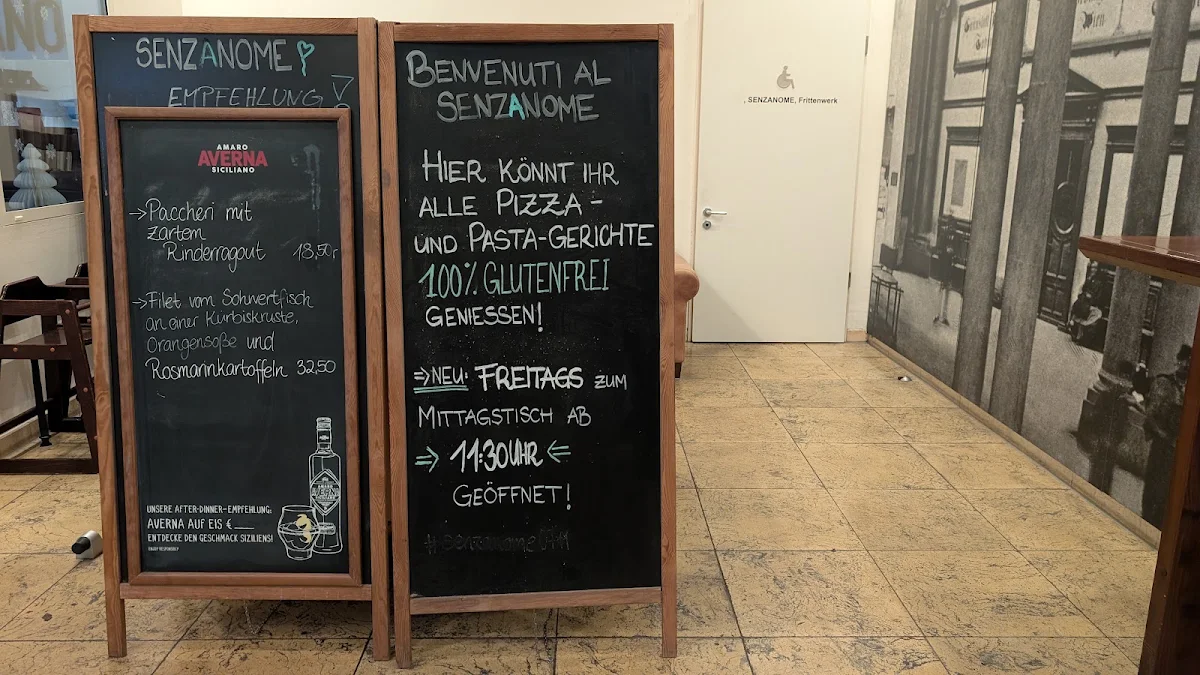 SENZANOME
EMPFEHLUNG
AMARO
AVERNA
SICILIANO
→Paccheri mit
zartem
Rinderragout 18,50
→Filet vom Schwertfisch
an einer Kürbiskruste,
Orangensoße und
Rosmarinkartoffeln 32,50
UNSERE AFTER-DINNER-EMPFEHLUNG:
AVERNA AUF EIS €___
ENTDECKE DEN GESCHMACK SIZILIENS!
BENVENUTI AL
SENZANOME
HIER KÖNNT IHR
ALLE PIZZA-
UND PASTA-GERICHTE
100% GLUTENFREI
GENIESSEN!
⇒NEU: FREITAGS ZUM
MITTAGSTISCH AB
⇒ 11:30UHR ⇐
GEÖFFNET!
, SENZANOME, Frittenwerk